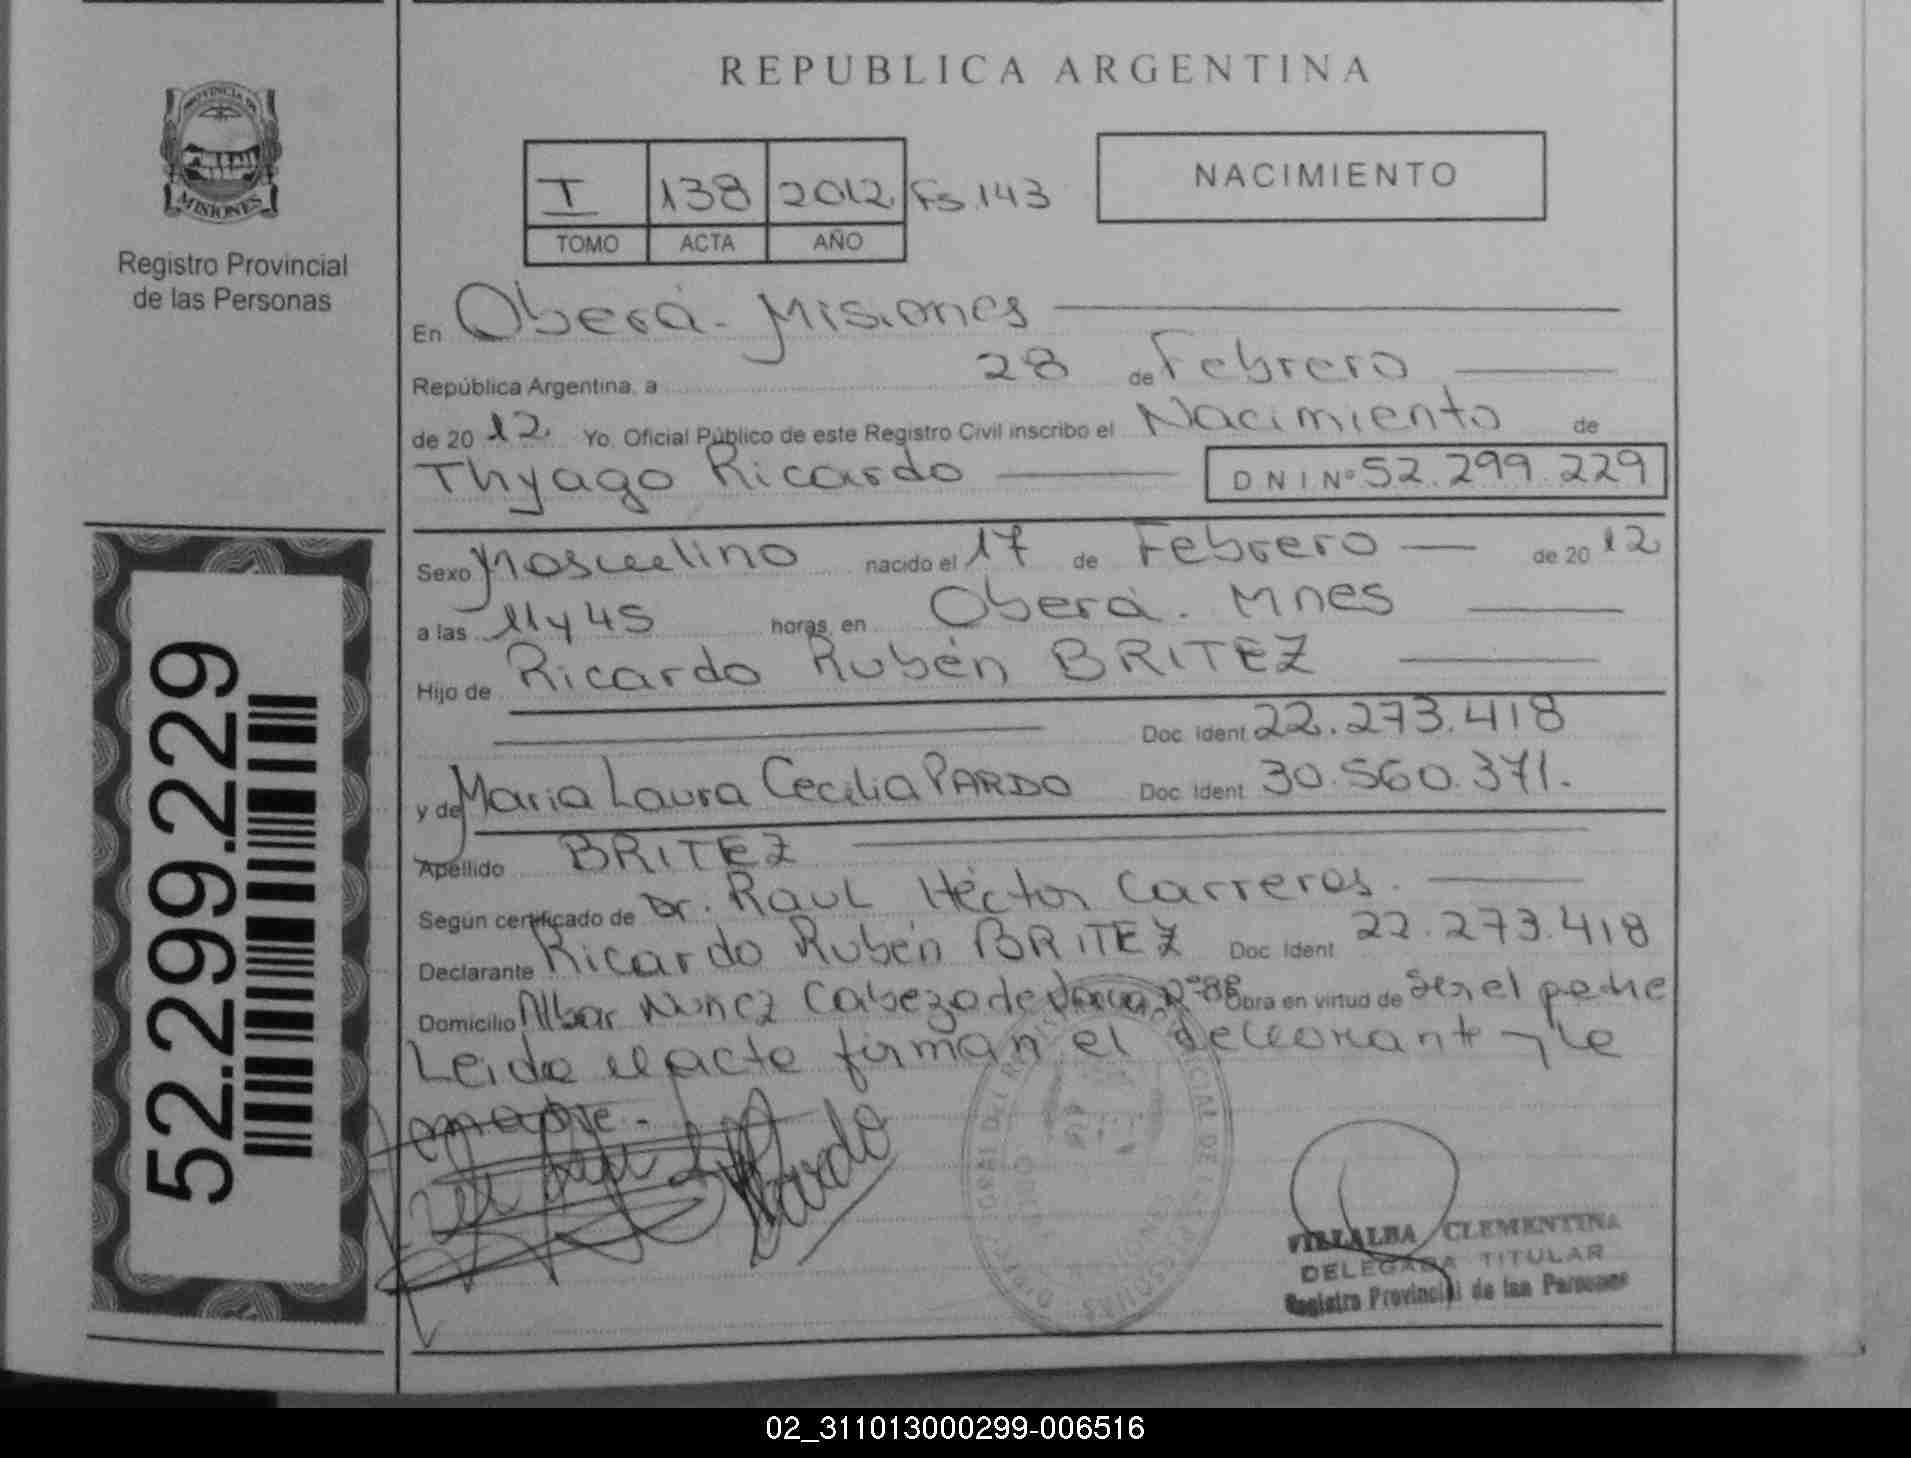 PROVINCIA DE
MISIONES
Registro Provincial
de las Personas
52.299.229
REPUBLICA ARGENTINA
I 138 2012 Fs. 143
TOMO ACTA AÑO
NACIMIENTO
En Oberá - Misiones
República Argentina, a 28 de Febrero
de 2012. Yo, Oficial Público de este Registro Civil inscribo el Nacimiento de
Thyago Ricardo DNI Nº 52.299.229
Sexo Masculino nacido el 17 de Febrero de 2012
a las 11 y 45 horas, en Oberá. Mnes
Hijo de Ricardo Rubén BRITEZ
Doc. Ident. 22.273.418
y de Maria Laura Cecilia PARDO Doc. Ident. 30.560.371.
Apellido BRITEZ
Según certificado de Dr. Raul Héctor Carreras.
Declarante Ricardo Rubén BRITEZ Doc. Ident. 22.273.418
Domicilio Albar Nuñez Cabeza de Vaca Obra en virtud de ser el padre
Leida el acta firman el declarante y la
madre.-
Pardo
VILLALBA CLEMENTINA
DELEGADA TITULAR
Registro Provincial de las Personas
02_311013000299-006516